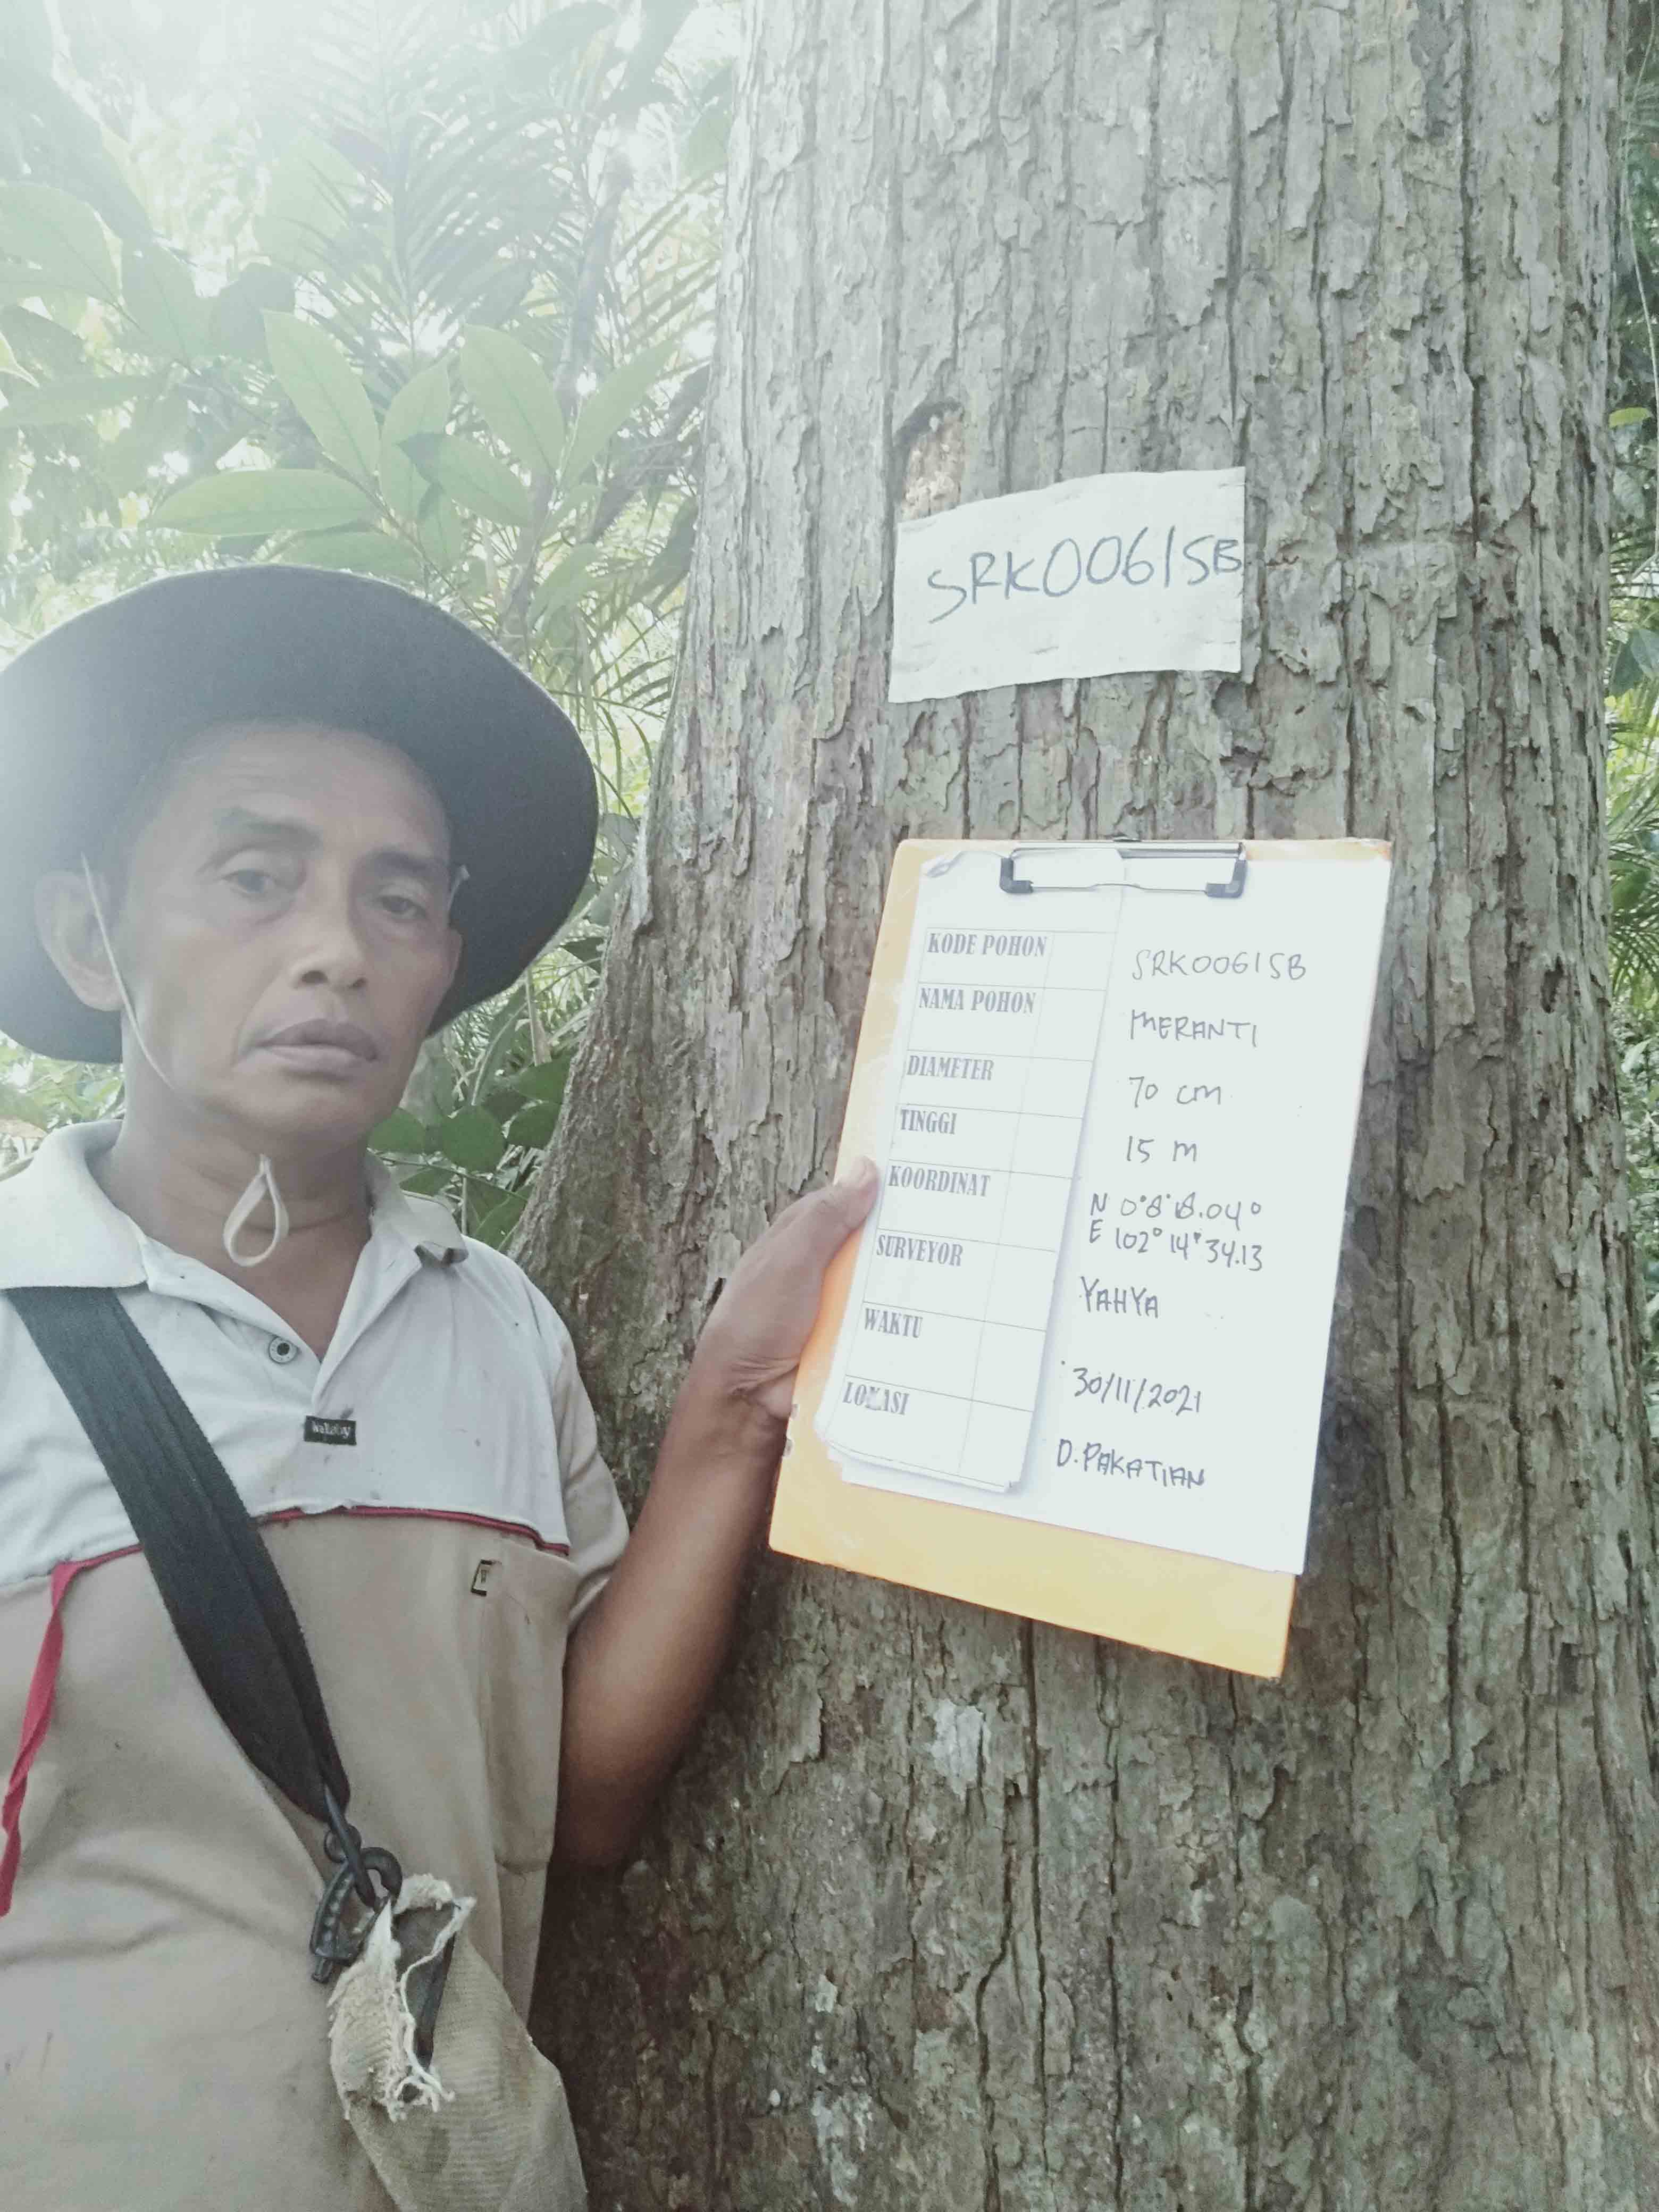 SRK0061SB
KODE POHON SRK0061SB
NAMA POHON MERANTI
DIAMETER 70 cm
TINGGI 15 m
KOORDINAT N 0°8' 18.04°
E 102° 14" 34.13
SURVEYOR YAHYA
WAKTU 30/11/2021
LOKASI D.PAKATIAN